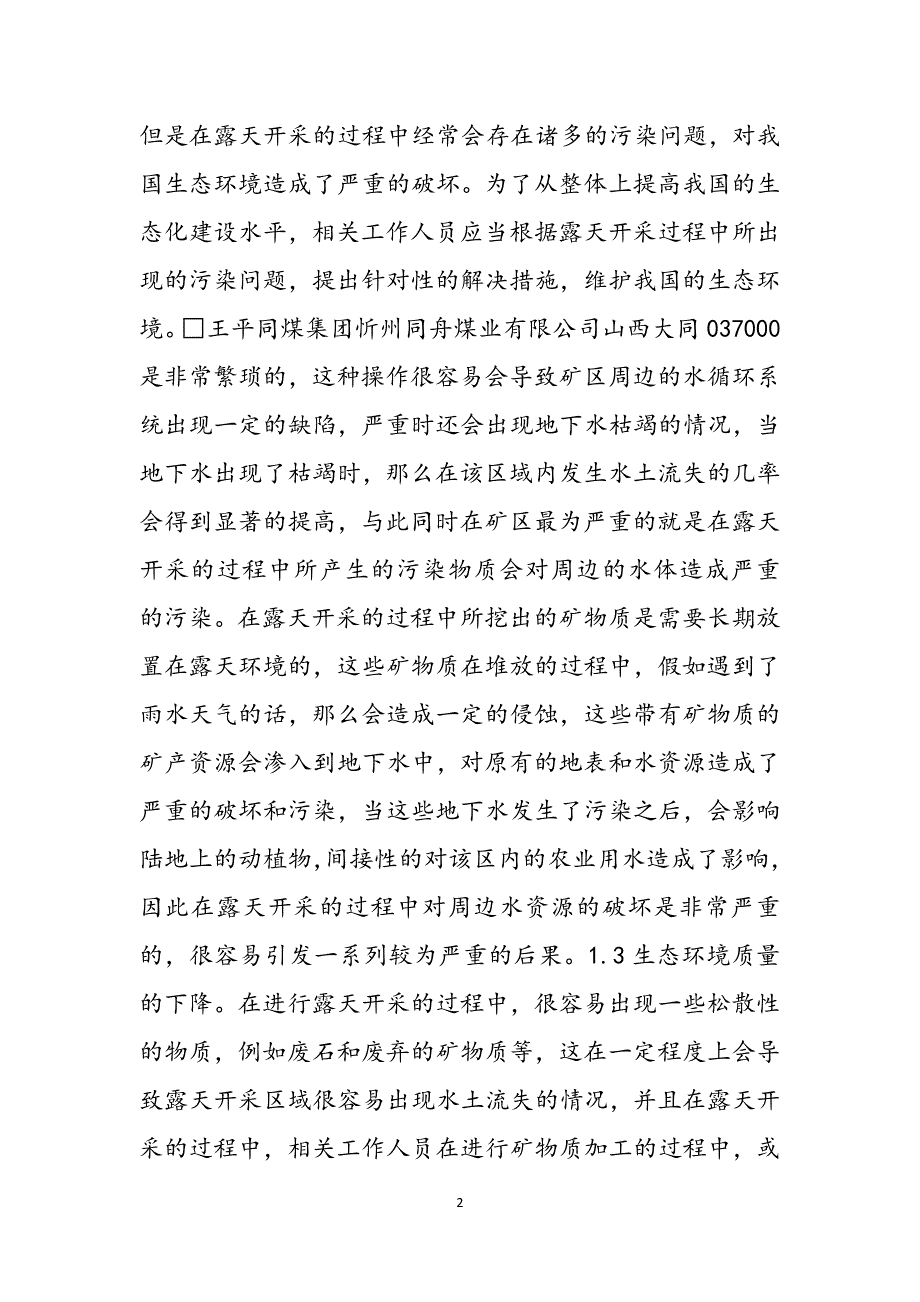 但是在露天开采的过程中经常会存在诸多的污染问题，对我
国生态环境造成了严重的破坏。为了从整体上提高我国的生
态化建设水平，相关工作人员应当根据露天开采过程中所出
现的污染问题，提出针对性的解决措施，维护我国的生态环
境。□王平同煤集团忻州同舟煤业有限公司山西大同 037000
是非常繁琐的，这种操作很容易会导致矿区周边的水循环系
统出现一定的缺陷，严重时还会出现地下水枯竭的情况，当
地下水出现了枯竭时，那么在该区域内发生水土流失的几率
会得到显著的提高，与此同时在矿区最为严重的就是在露天
开采的过程中所产生的污染物质会对周边的水体造成严重
的污染。在露天开采的过程中所挖出的矿物质是需要长期放
置在露天环境的，这些矿物质在堆放的过程中，假如遇到了
雨水天气的话，那么会造成一定的侵蚀，这些带有矿物质的
矿产资源会渗入到地下水中，对原有的地表和水资源造成了
严重的破坏和污染，当这些地下水发生了污染之后，会影响
陆地上的动植物,间接性的对该区内的农业用水造成了影响，
因此在露天开采的过程中对周边水资源的破坏是非常严重
的，很容易引发一系列较为严重的后果。1.3 生态环境质量
的下降。在进行露天开采的过程中，很容易出现一些松散性
的物质，例如废石和废弃的矿物质等，这在一定程度上会导
致露天开采区域很容易出现水土流失的情况，并且在露天开
采的过程中，相关工作人员在进行矿物质加工的过程中，或
2